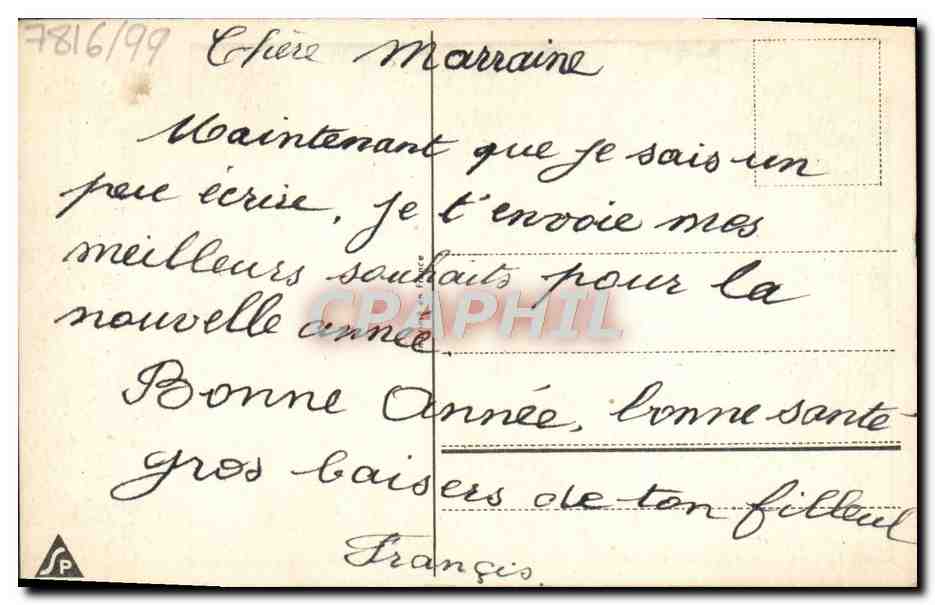 7816/99
Chère Marraine
Maintenant que je sais un
peu écrire, je t'envoie mes
meilleurs souhaits pour la
nouvelle année.
CPAPHIL
Bonne Année, bonne santé
gros baisers de ton filleul
Françis.
SP